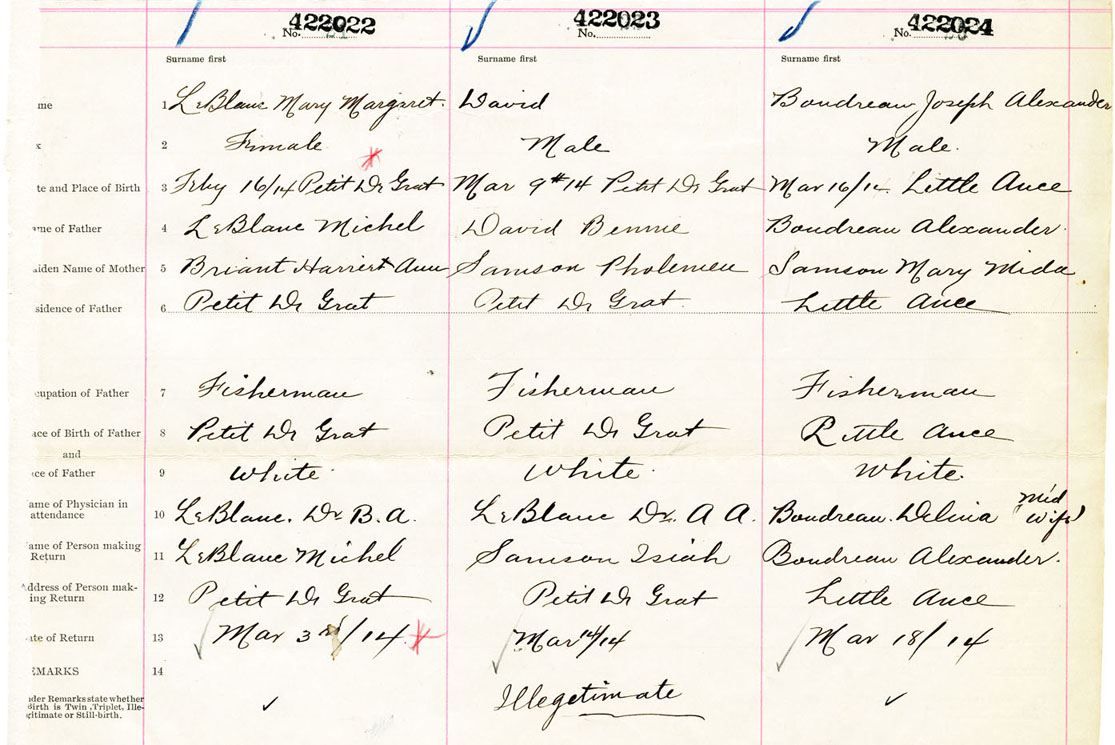 422022 422023 422024
No. No. No.
Surname first Surname first Surname first
me 1 LeBlanc Mary Margaret. David Boudreau Joseph Alexander
x 2 Female Male Male.
te and Place of Birth 3 Feby 16/14 Petit De Grat Mar 9th 14 Petit De Grat Mar 16/14 Little Ance
ame of Father 4 LeBlanc Michel David Bennie Boudreau Alexander.
aiden Name of Mother 5 Briant Harriet Ann Samson Pholemen Samson Mary Mida
sidence of Father 6 Petit De Grat Petit De Grat Little Ance
cupation of Father 7 Fisherman Fisherman Fisherman
ace of Birth of Father 8 Petit De Grat Petit De Grat Little Ance
and
ce of Father 9 White. White. White.
ame of Physician in
attendance 10 LeBlanc. Dr B. A. LeBlanc Dr. A A. Boudreau. Delina (Mid
wife)
ame of Person making
Return 11 LeBlanc Michel Samson Isiah Boudreau Alexander.
Address of Person mak-
ing Return 12 Petit De Grat Petit De Grat Little Ance
ate of Return 13 Mar 3rd/14 Mar 14/14 Mar 18/14
EMARKS 14
nder Remarks state whether
Birth is Twin, Triplet, Ille-
gitimate or Still-birth. Illegetimate